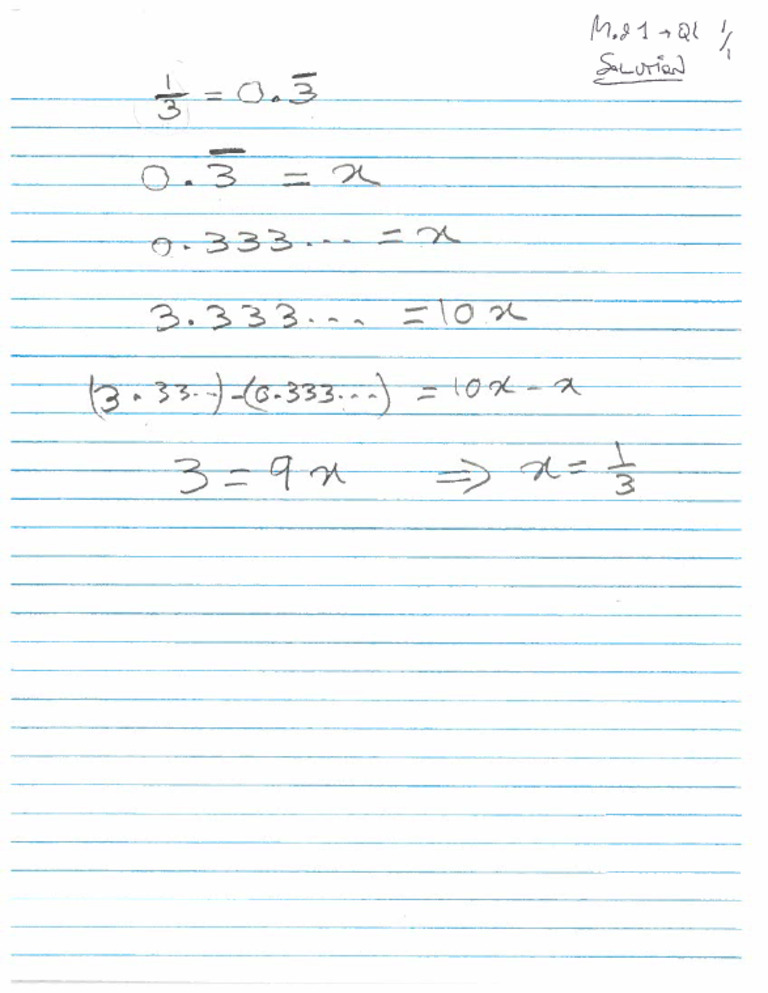 M.d 1 → Q1 1/1
SOLUTION
1/3 = 0.3̅
0.3̅ = x
0.333... = x
3.333... = 10x
(3.33...)-(0.333...) = 10x - x
3 = 9x ⇒ x = 1/3